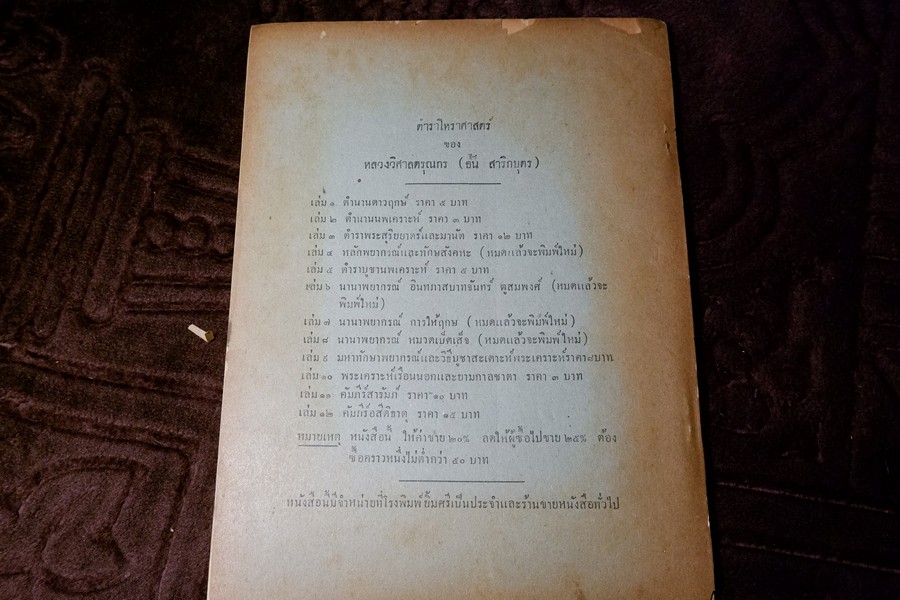 ตำราโหราศาสตร์
ของ
หลวงวิศาลดรุณกร (อั้น สาริกบุตร)
เล่ม ๑ ตำนานดาวฤกษ์ ราคา ๕ บาท
เล่ม ๒ ตำนานนพเคราะห์ ราคา ๓ บาท
เล่ม ๓ ตำราพระสุริยยาตร์และมานัต ราคา ๑๒ บาท
เล่ม ๔ หลักพยากรณ์และทักษสังคหะ (หมดแล้วจะพิมพ์ใหม่)
เล่ม ๕ ตำราบูชานพเคราะห์ ราคา ๕ บาท
เล่ม ๖ นานาพยากรณ์ อินทภาสบาทจันทร์ ดูสมพงศ์ (หมดแล้วจะ
พิมพ์ใหม่)
เล่ม ๗ นานาพยากรณ์ การให้ฤกษ (หมดแล้วจะพิมพ์ใหม่)
เล่ม ๘ นานาพยากรณ์ หมวดเบ็ดเสร็จ (หมดแล้วจะพิมพ์ใหม่)
เล่ม ๙ มหาทักษาพยากรณ์และวิธีบูชาสะเดาะห์พระเคราะห์ราคา บาท
เล่ม ๑๐ พระเคราะห์เรือนนอกและยามกาลชาตา ราคา ๓ บาท
เล่ม ๑๑ คัมภีร์สารัมภ์ ราคา ๑๐ บาท
เล่ม ๑๒ คัมภีร์อสีติธาตุ ราคา ๑๕ บาท
หมายเหตุ หนังสือนี้ ให้ค่าขาย ๒๐% ลดให้ผู้ซื้อไปขาย ๒๕% ต้อง
ซื้อคราวหนึ่งไม่ต่ำกว่า ๕๐ บาท
หนังสือนี้มีจำหน่ายที่โรงพิมพ์ยิ้มศรีเป็นประจำและร้านขายหนังสือทั่วไป